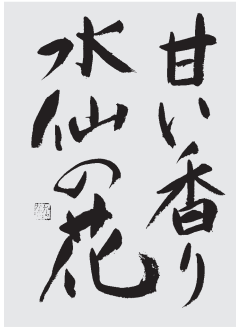 甘い香り
水仙の花